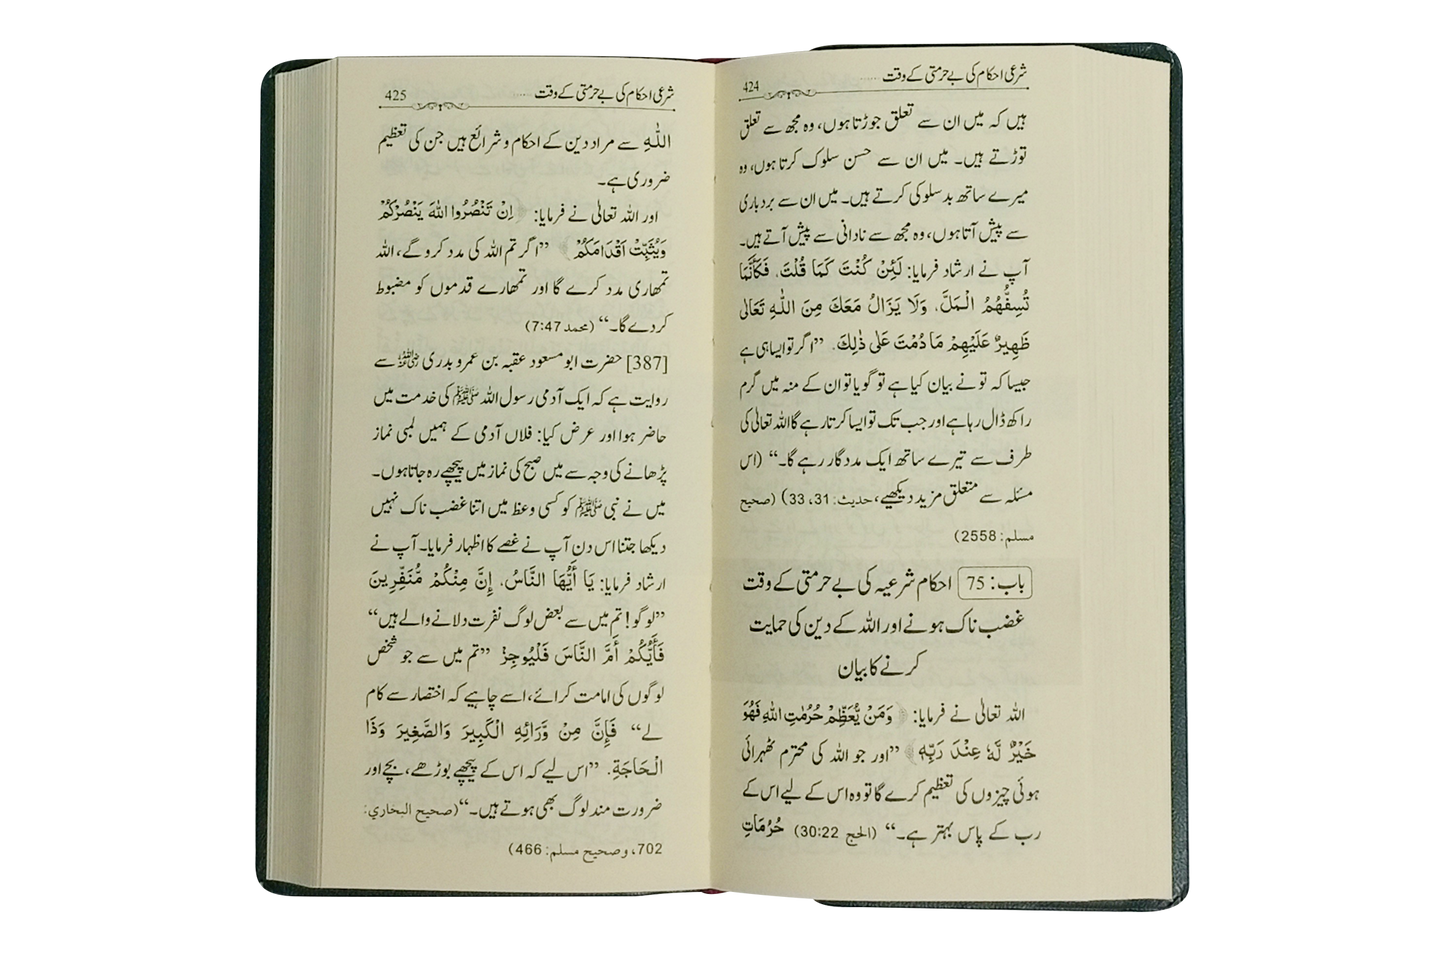 شرعی احکام کی بے حرمتی کے وقت ...... 424
ہیں کہ میں ان سے تعلق جوڑتا ہوں، وہ مجھ سے تعلق
توڑتے ہیں۔ میں ان سے حسن سلوک کرتا ہوں، وہ
میرے ساتھ بدسلوکی کرتے ہیں۔ میں ان سے بردباری
سے پیش آتا ہوں، وہ مجھ سے نادانی سے پیش آتے ہیں۔
آپ نے ارشاد فرمایا: لَئِنْ كُنْتَ كَمَا قُلْتَ، فَكَأَنَّمَا
تُسِفُّهُمُ الْمَلَّ، وَلَا يَزَالُ مَعَكَ مِنَ اللّٰهِ تَعَالٰى
ظَهِيرٌ عَلَيْهِمْ مَا دُمْتَ عَلٰى ذٰلِكَ. ’’اگر تو ایسا ہی ہے
جیسا کہ تو نے بیان کیا ہے تو گویا تو ان کے منہ میں گرم
راکھ ڈال رہا ہے اور جب تک تو ایسا کرتا رہے گا اللہ تعالیٰ کی
طرف سے تیرے ساتھ ایک مددگار رہے گا۔‘‘ (اس
مسئلہ سے متعلق مزید دیکھیے، حدیث: 31، 33) (صحیح
مسلم: 2558)
باب: 75 احکام شرعیہ کی بے حرمتی کے وقت
غضب ناک ہونے اور اللہ کے دین کی حمایت
کرنے کا بیان
اللہ تعالیٰ نے فرمایا: ﴿وَمَنْ يُّعَظِّمْ حُرُمٰتِ اللّٰهِ فَهُوَ
خَيْرٌ لَّهٗ عِنْدَ رَبِّهٖ﴾ ’’اور جو اللہ کی محترم ٹھہرائی
ہوئی چیزوں کی تعظیم کرے گا تو وہ اس کے لیے اس کے
رب کے پاس بہتر ہے۔‘‘ (الحج 30:22) حُرُمَاتِ
شرعی احکام کی بے حرمتی کے وقت ...... 425
اللّٰهِ سے مراد دین کے احکام و شرائع ہیں جن کی تعظیم
ضروری ہے۔
اور اللہ تعالیٰ نے فرمایا: ﴿اِنْ تَنْصُرُوا اللّٰهَ يَنْصُرْكُمْ
وَيُثَبِّتْ اَقْدَامَكُمْ﴾ ’’اگر تم اللہ کی مدد کرو گے، اللہ
تمہاری مدد کرے گا اور تمہارے قدموں کو مضبوط
کر دے گا۔‘‘ (محمد 7:47)
[387] حضرت ابو مسعود عقبہ بن عمرو بدری رضی اللہ عنہ سے
روایت ہے کہ ایک آدمی رسول اللہ ﷺ کی خدمت میں
حاضر ہوا اور عرض کیا: فلاں آدمی کے ہمیں لمبی نماز
پڑھانے کی وجہ سے میں صبح کی نماز میں پیچھے رہ جاتا ہوں۔
میں نے نبی ﷺ کو کسی وعظ میں اتنا غضب ناک نہیں
دیکھا جتنا اس دن آپ نے غصے کا اظہار فرمایا۔ آپ نے
ارشاد فرمایا: يَا أَيُّهَا النَّاسُ، إِنَّ مِنْكُمْ مُّنَفِّرِينَ
’’لوگو! تم میں سے بعض لوگ نفرت دلانے والے ہیں‘‘
فَأَيُّكُمْ أَمَّ النَّاسَ فَلْيُوجِزْ ’’تم میں سے جو شخص
لوگوں کی امامت کرائے، اسے چاہیے کہ اختصار سے کام
لے‘‘ فَإِنَّ مِنْ وَّرَائِهِ الْكَبِيرَ وَالصَّغِيرَ وَذَا
الْحَاجَةِ. ’’اس لیے کہ اس کے پیچھے بوڑھے، بچے اور
ضرورت مند لوگ بھی ہوتے ہیں۔‘‘ (صحیح البخاري:
702، وصحیح مسلم: 466)